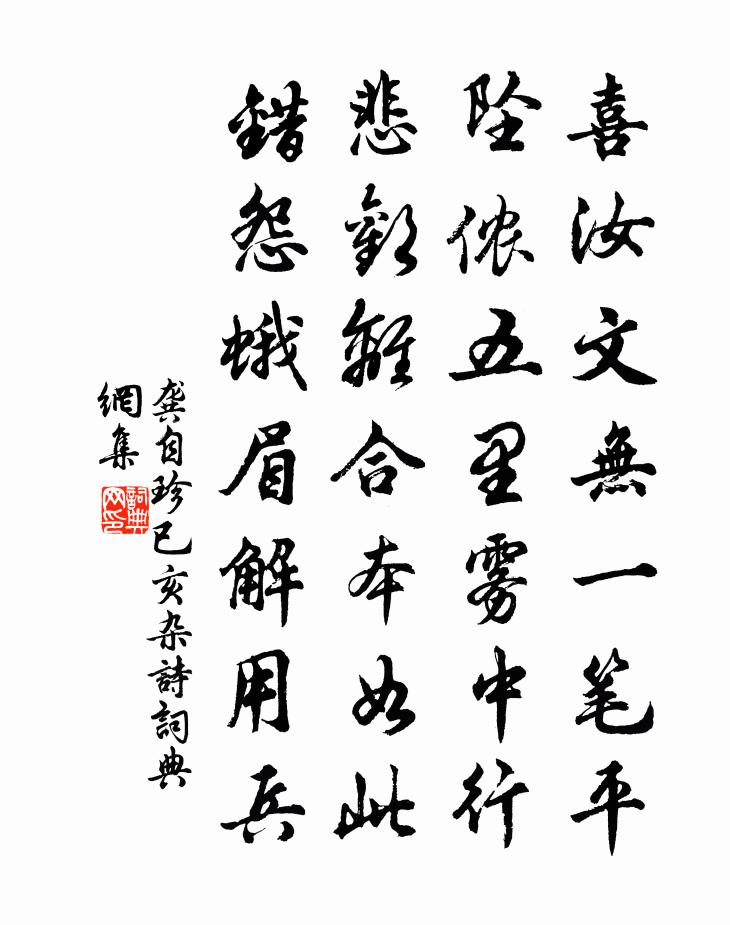 喜汝文無一笔平
坠侬五里雾中行
悲歡離合本如此
錯怨蛾眉解用兵
龚自珍己亥杂詩詞典
網集
詞典网印